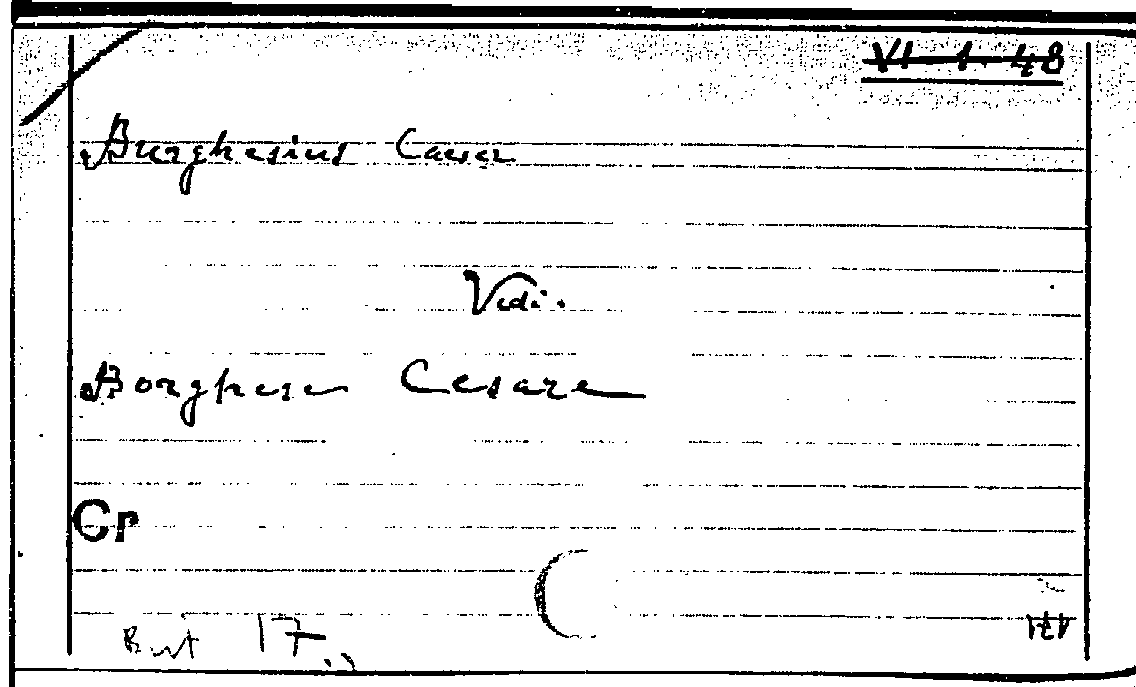 VI-1.48
Burghesius Caesar
Vedi.
Borghese Cesare
Cr
But 17